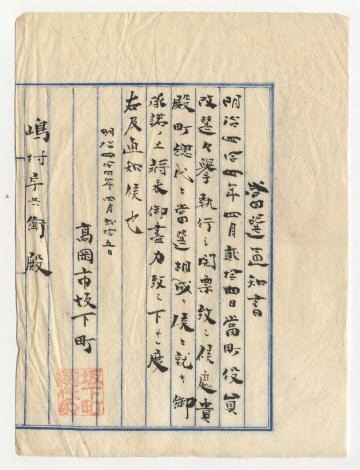 當選通知書
明治四十四年四月貳拾四日當町役員
改選々擧執行シ開票致シ候處貴
殿町總代ニ當選相成リ候ニ就キ御
承諾ノ上將来御盡力致シ下サレ度
右及通知候也
明治四十四年四月貳拾五日
高岡市坂下町
嶋村 兵衛殿
坂下町
總代